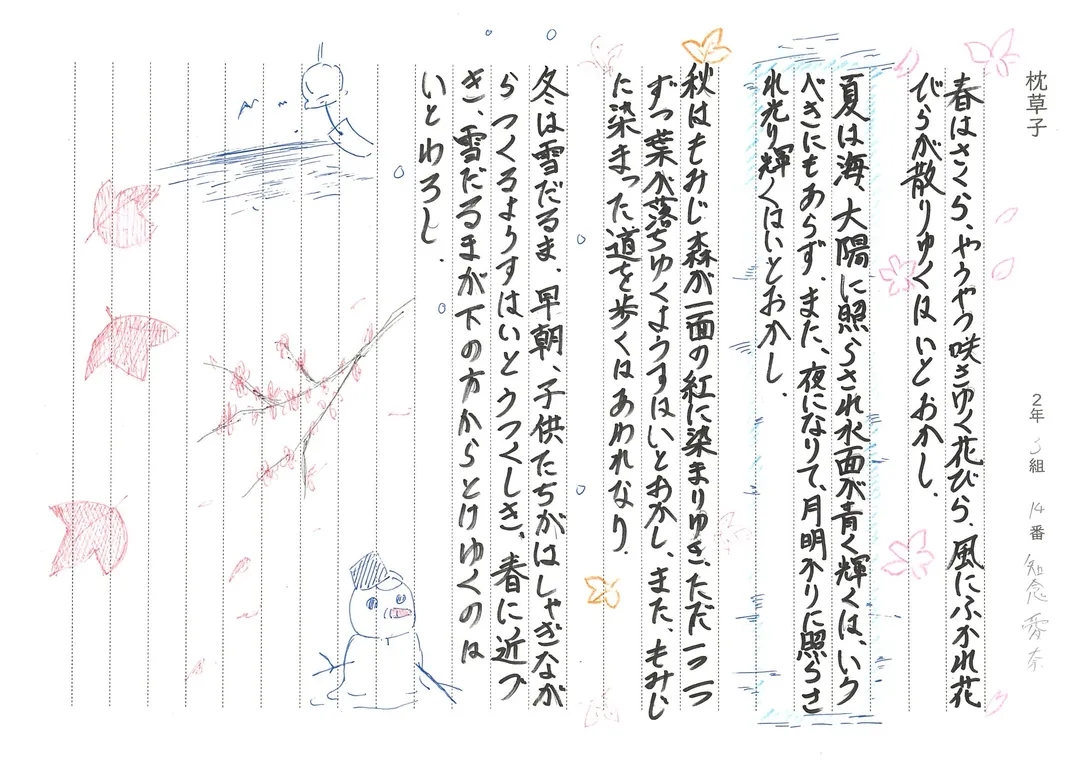 枕草子
2年 3組 14番 知念 愛奈
春はさくら、やうやう咲きゆく花びら、風にふかれ花
びらが散りゆくはいとおかし。
夏は海、大陽に照らされ水面が青く輝くは、いう
べきにもあらず、また、夜になりて、月明かりに照らさ
れ光り輝くはいとおかし。
秋はもみじ森が一面の紅に染まりゆき、ただ一つ二つ
ずつ葉が落ちゆくようすはいとおかし、また、もみじ
に染まった道を歩くはあわれなり。
冬は雪だるま、早朝、子供たちがはしゃぎなが
らつくるようすはいとうつくしき、春に近づ
き、雪だるまが下の方からとけゆくのは
いとわろし。